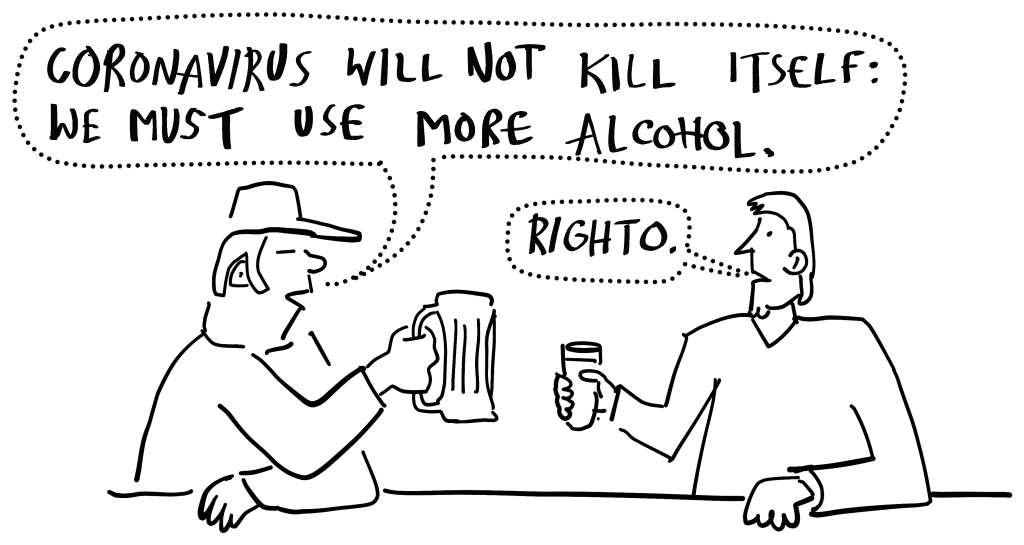 CORONAVIRUS WILL NOT KILL ITSELF:
WE MUST USE MORE ALCOHOL.
RIGHTO.